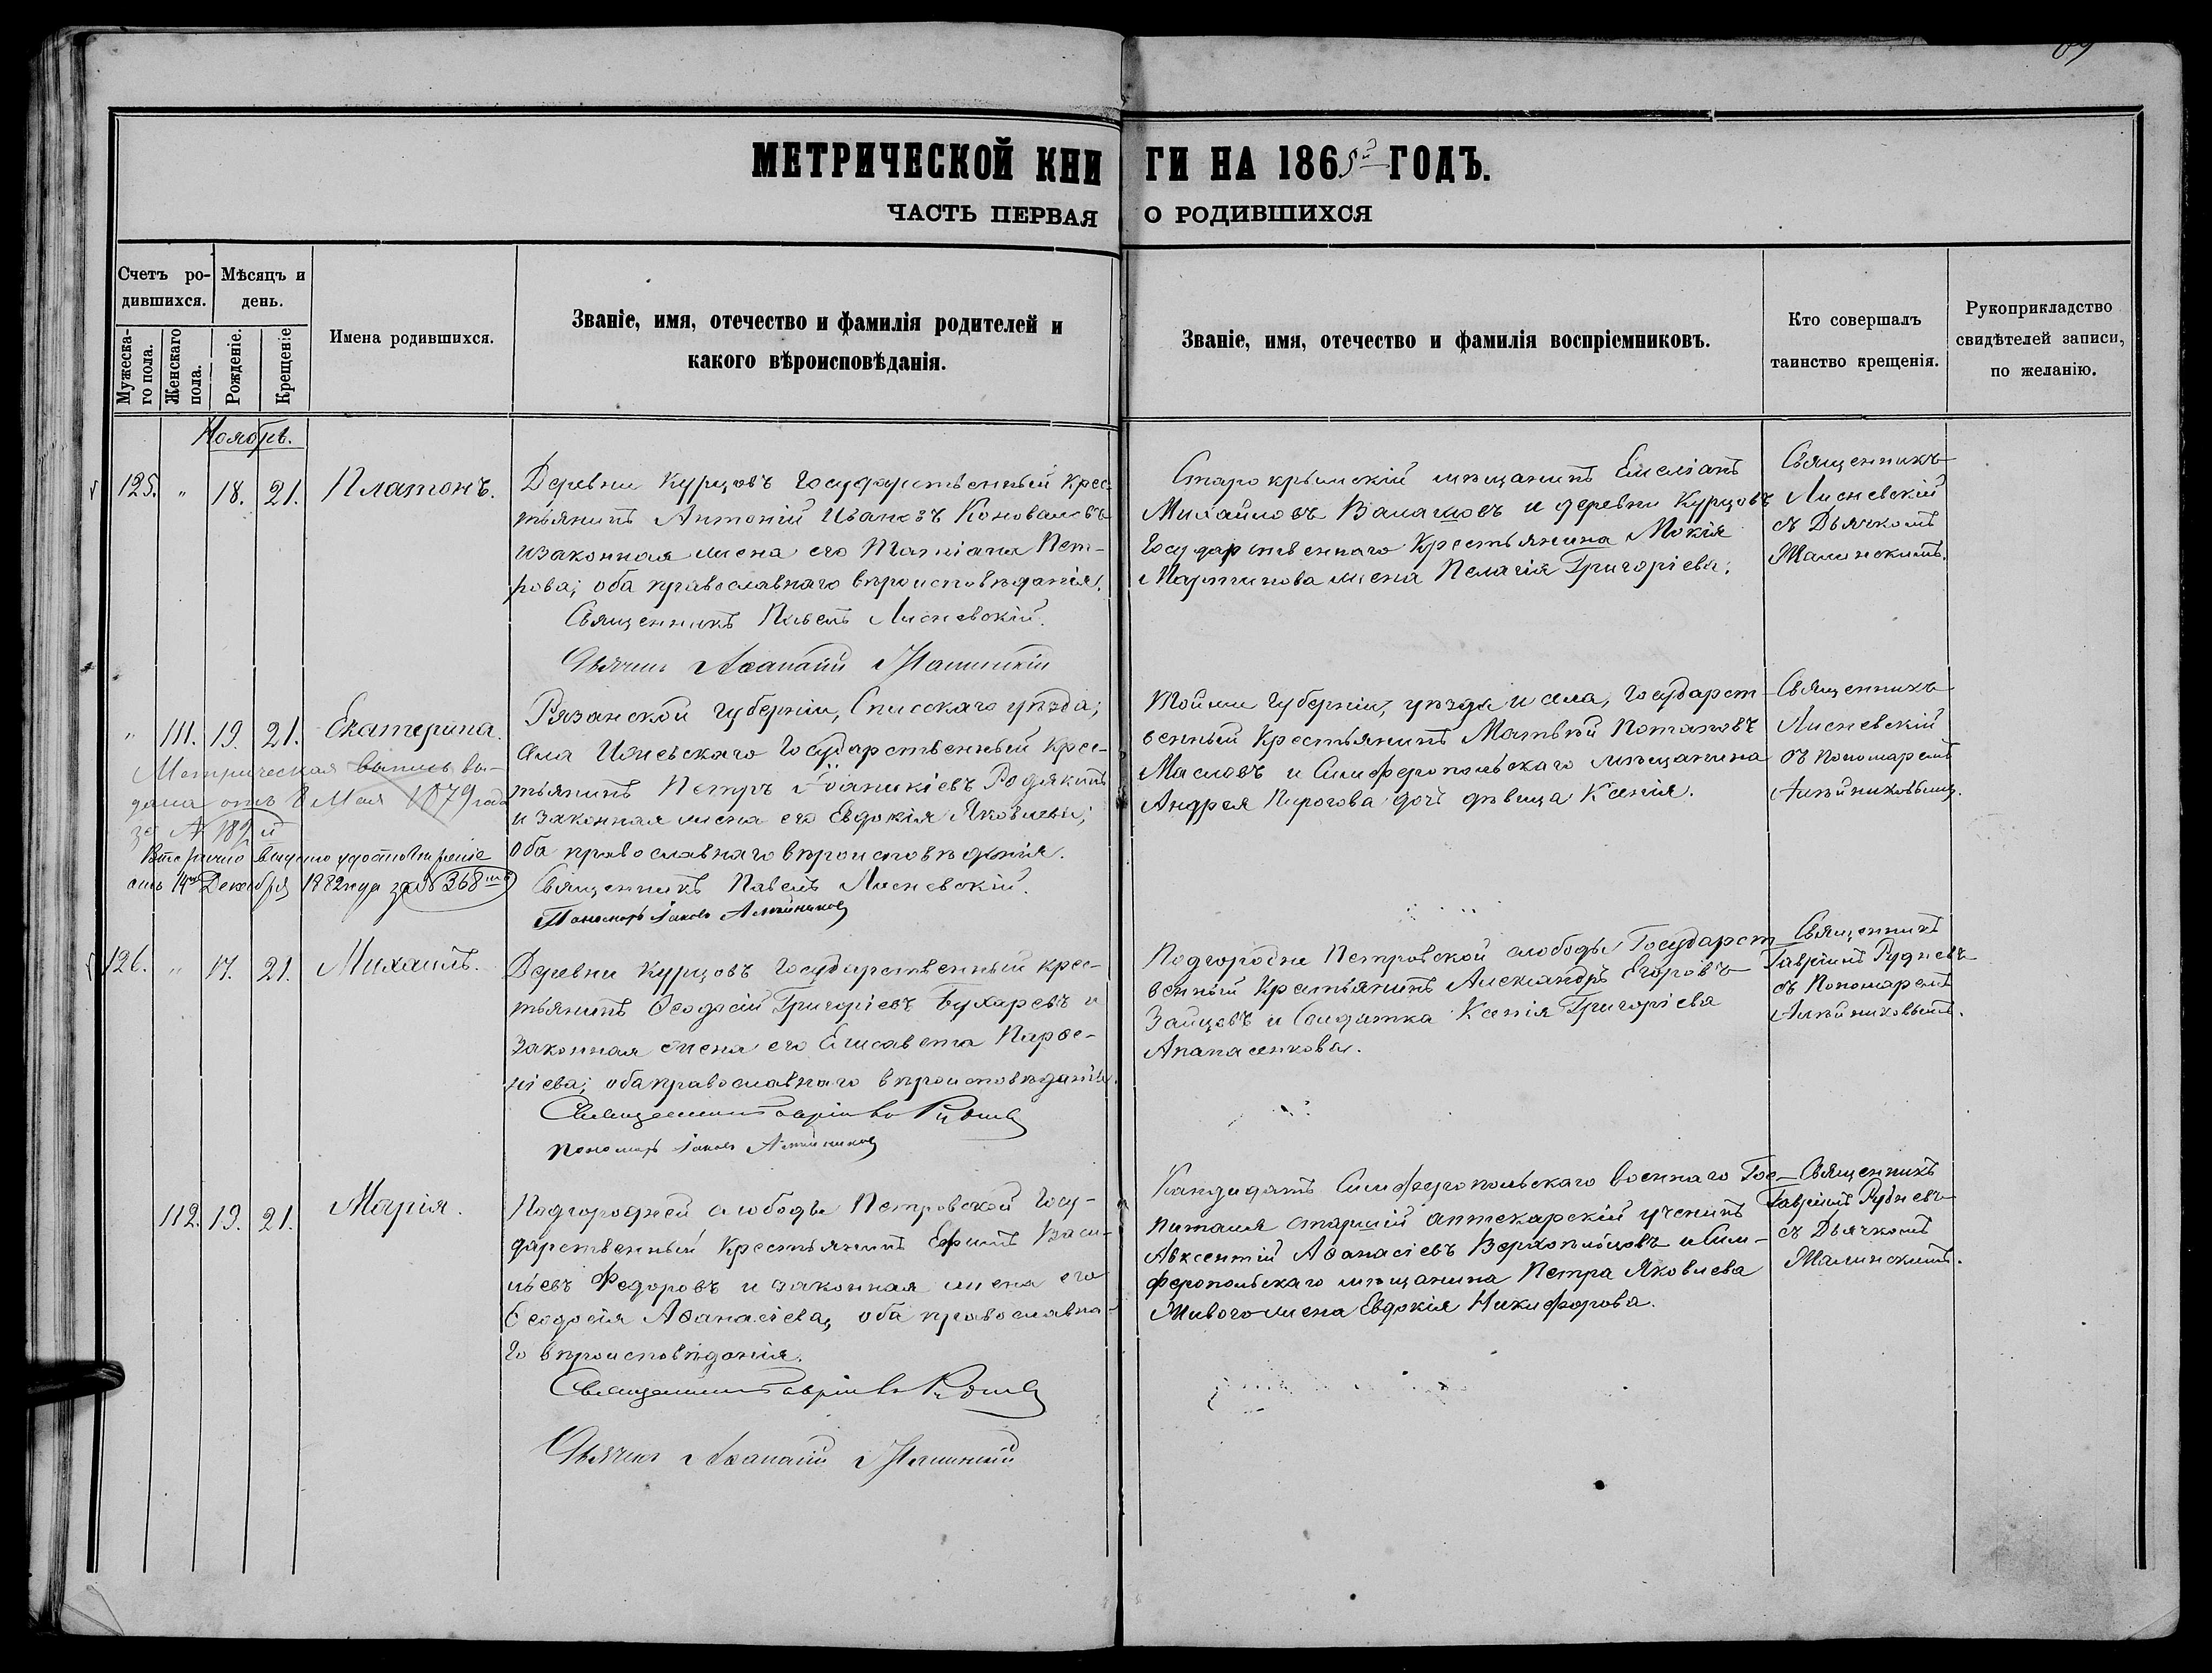 МЕТРИЧЕСКОЙ КНИГИ НА 1865й ГОДЪ.
ЧАСТЬ ПЕРВАЯ О РОДИВШИХСЯ
Счетъ ро-
дившихся.
Мужеска-
го пола.
Женскаго
пола.
Мѣсяцъ и
день.
Рожденіе.
Крещеніе
Имена родившихся.
Званіе, имя, отечество и фамилія родителей и
какого вѣроисповѣданія.
Званіе, имя, отечество и фамилія воспріемниковъ.
Кто совершалъ
таинство крещенія.
Рукоприкладство
свидѣтелей записи,
по желанію.
Ноябрь.
125. " 18. 21. Платонъ.
Деревни Курцовъ Государственный крес-
тьянинъ Антоній Ивановъ Коноваловъ
и законная жена его Татіана Пет-
рова; оба православнаго вѣроисповѣданія.
Священникъ Павелъ Лисневскій.
Дьячекъ Аѳанасій Малинскій
Старокрымскій мѣщанинъ Емеліанъ
Михайловъ Валашовъ и деревни Курцовъ
Государственнаго Крестьянина Мокія
Мартинова жена Пелагія Григоріева.
Священникъ
Лисневскій
съ Дьячкомъ
Малинскимъ.
" 111. 19. 21. Екатерина.
Метрическая выпись вы-
дана отъ 8 Мая 1879 года
за № 189й
Вторично выдано удостовѣреніе
отъ 14го Декабря 1882 года за № 368мъ
Рязанской губерніи, Спасскаго уѣзда,
села Ижевскаго Государственный крес-
тьянинъ Петръ Іоаникіевъ Родякинъ
и законная жена его Евдокія Яковлева;
оба православнаго вѣроисповѣданія.
Священникъ Павелъ Лисневскій.
Пономарь Іаковъ Алейниковъ
Той же губерніи, уѣзда и села, Государст-
венный Крестьянинъ Матвѣй Потаповъ
Масловъ и Симферопольскаго мѣщанина
Андрея Пирогова дочь дѣвица Ксенія.
Священникъ
Лисневскій
съ пономаремъ
Алейниковымъ.
126. " 17. 21. Михаилъ.
Деревни Курцовъ Государственный крес-
тьянинъ Ѳеодосій Григоріевъ Бухаревъ и
законная жена его Елисавета Парѳе-
ніева; оба православнаго вѣроисповѣданія.
Священникъ Гавріилъ Рудневъ
Пономарь Іаковъ Алейниковъ
Подгородне Петровской слободы Государст-
венный Крестьянинъ Александръ Егоровъ
Зайцовъ и Солдатка Ксенія Григоріева
Апанасенкова.
Священникъ
Гавріилъ Рудневъ
съ Пономаремъ
Алейниковымъ.
112. 19. 21. Марія.
Подгородней слободы Петровской Госу-
дарственный Крестьянинъ Ефимъ Васи-
льевъ Федоровъ и законная жена его
Ѳеодосія Аѳанасіева, оба православна-
го вѣроисповѣданія.
Священникъ Гавріилъ Рудневъ
Дьячекъ Аѳанасій Малинскій
Кандидатъ Симферопольскаго военнаго Гос-
питаля старшій аптекарскій ученикъ
Авксентій Аѳанасіевъ и Сим-
феропольскаго мѣщанина Петра Яковлева
Живого жена Евдокія Никифорова.
Священникъ
Гавріилъ Рудневъ
съ Дьячкомъ
Малинскимъ.